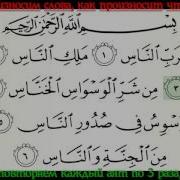 износим слова, как произносит чт
بِسْمِ ٱللَّهِ ٱلرَّحْمَٰنِ ٱلرَّحِيمِ
رَبِّ ٱلنَّاسِ ١ مَلِكِ ٱلنَّاسِ
مِن شَرِّ ٱلْوَسْوَاسِ ٱلْخَنَّاسِ
سْوِسُ فِى صُدُورِ ٱلنَّاسِ ٥
مِنَ ٱلْجِنَّةِ وَٱلنَّاسِ ٦
повторяем каждый аят по 3 раза